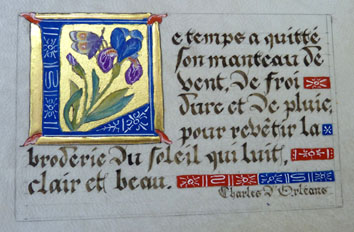 Le temps a quitté
son manteau de
vent, de froi
dure et de pluie,
pour revêtir la
broderie du soleil qui luit,
clair et beau.
Charles d'Orléans